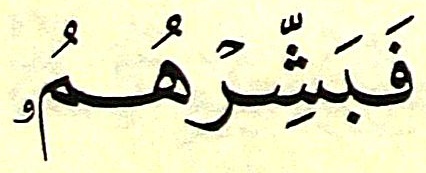 فَبَشِّرۡهُمُۥ